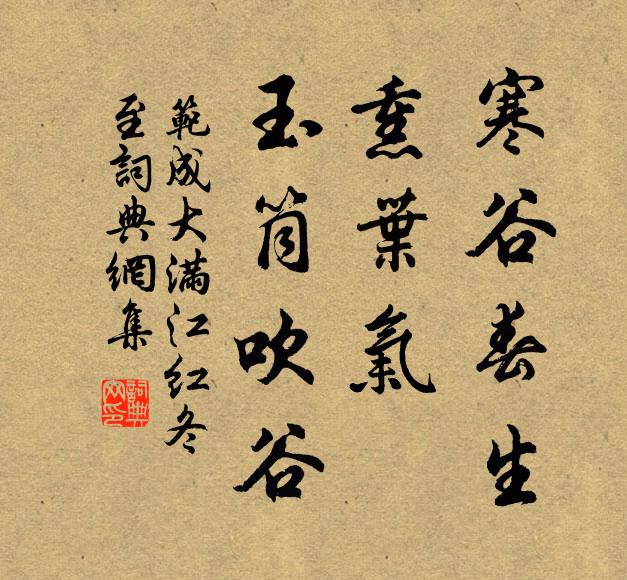 寒谷春生
熏葉氣
玉筒吹谷
範成大滿江红冬
至詞典網集
詞典
网印